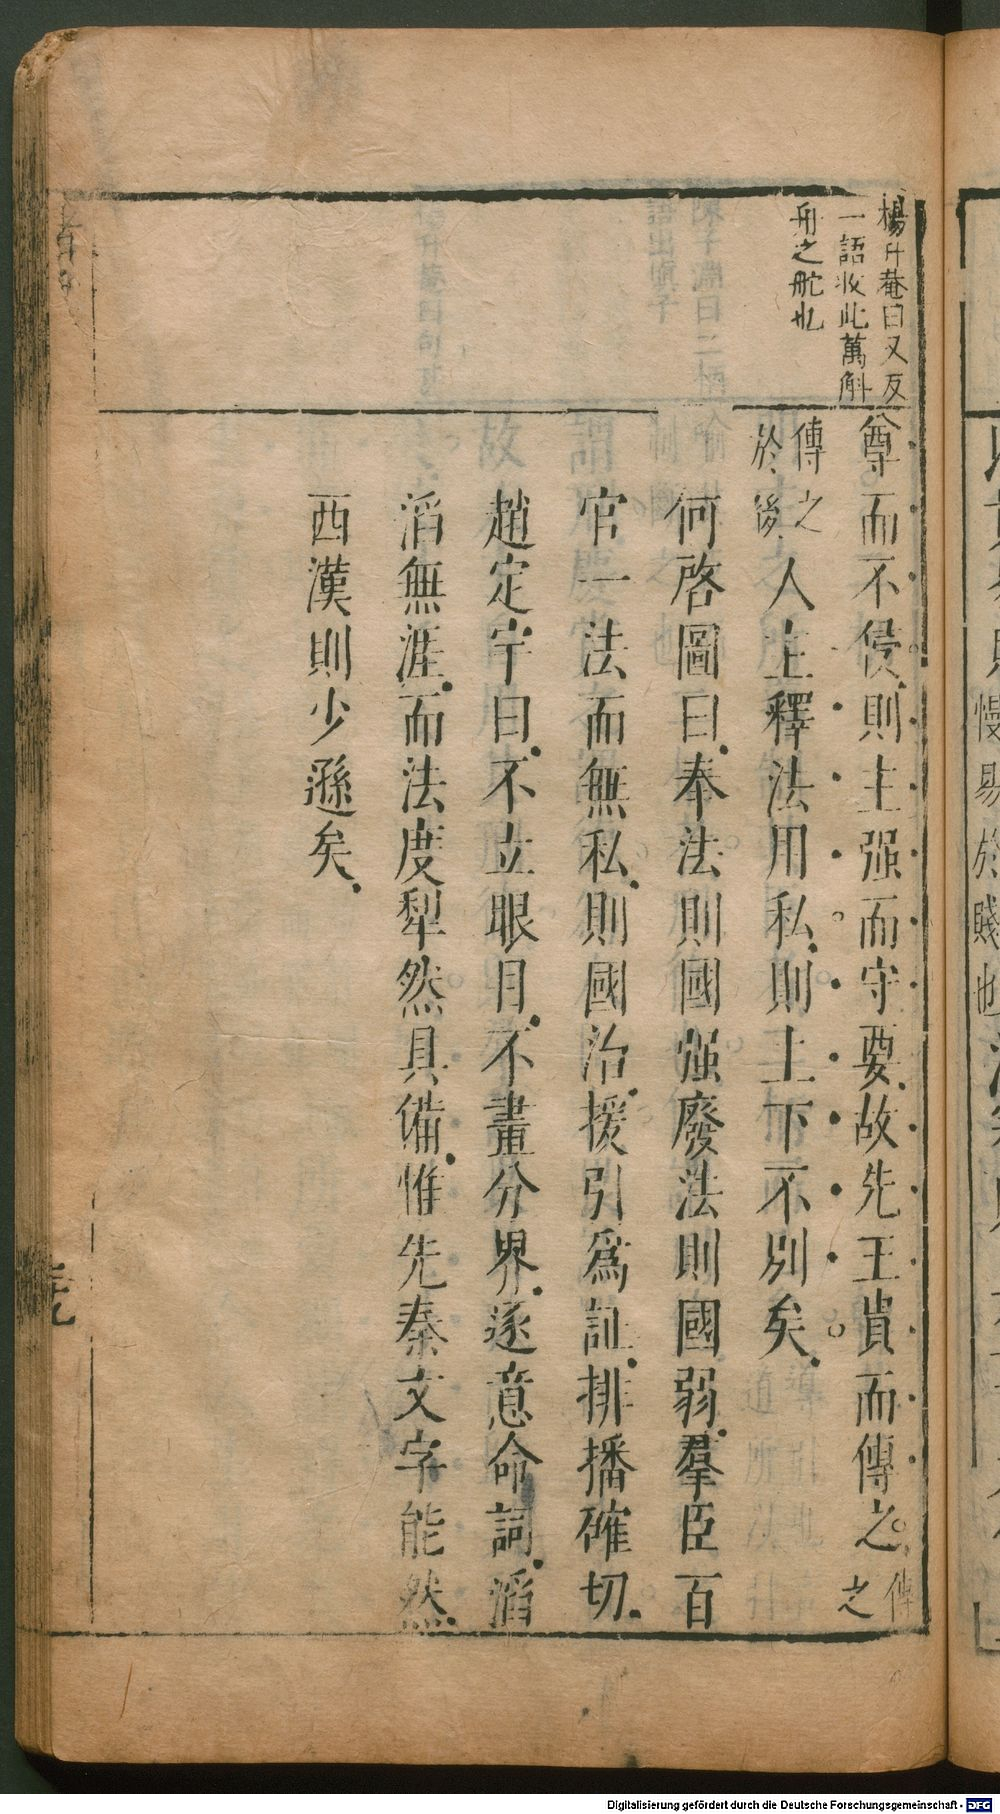 楊升菴曰又反
一語收此萬斛
舟之舵也
尊而不侵則主强而守要故先王貴而傳之傳之
傳之
於後人主釋法用私則上下不別矣
何啓圖曰奉法則國强廢法則國弱羣臣百
官一法而無私則國治援引爲証排播確切
趙定宇曰不立眼目不畫分界逐意命詞滔
滔無涯而法度犁然具備惟先秦文字能然
西漢則少遜矣
慢易於賤也
Digitalisierung gefördert durch die Deutsche Forschungsgemeinschaft - DFG